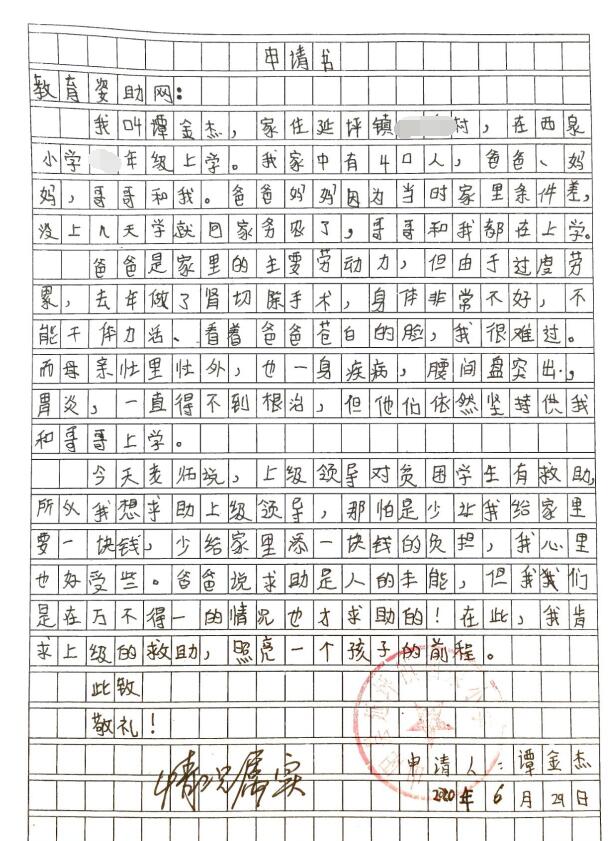 申请书
教育姿助网：
我叫谭金杰，家住延坪镇村，在西泉
小学年级上学。我家中有4口人，爸爸、妈
妈，哥哥和我。爸爸妈妈因为当时家里条件差，
没上几天学就回家务农了，哥哥和我都在上学。
爸爸是家里的主要劳动力，但由于过度劳
累，去年做了肾切除手术，身体非常不好，不
能干体力活、看着爸爸苍白的脸，我很难过。
而母亲忙里忙外，也一身疾病，腰间盘突出，
胃炎，一直得不到根治，但他们依然坚持供我
和哥哥上学。
今天老师说，上级领导对贫困学生有救助，
所以我想求助上级领导，那怕是少让我给家里
要一块钱，少给家里添一块钱的负担，我心里
也好受些。爸爸说求助是人的本能，但我我们
是在万不得一的情况也才求助的！在此，我肯
求上级的救助，照亮一个孩子的前程。
此致
敬礼！
申请人：谭金杰
情况属实
2020年6月29日